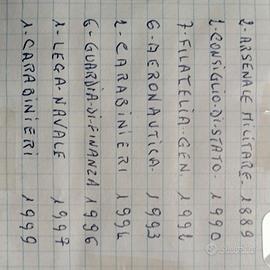 2-ARSENALE MILITARE. 1889
1-CONSIGLIO-DI-STATO. 1990
7-FILATELIA-GEN. 1992
6-AERONAUTICA. 1993
2-CARABINIERI 1994
6-GUARDIA-DI-FINANZA 1996
1-LEGA-NAVALE 1997
1-CARABINIERI 1999